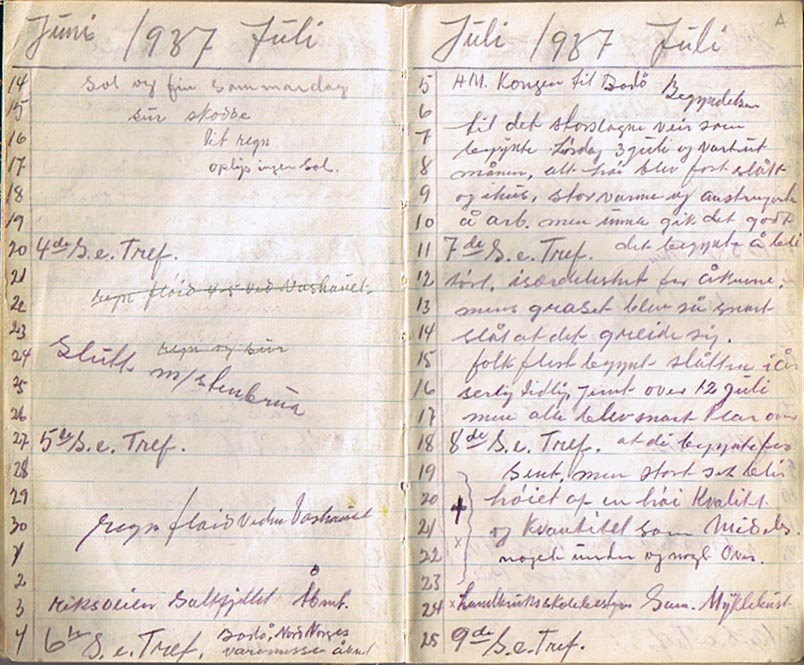 Juni 1937 Juli
14 Sol og fin sommardag
15 sur skodde
16 lit regn
17 oplys ingen sol.
18
19
20 4de S.e. Tref.
21
22 regn fløid 4-5 ved Vashauet
23
24 Slutt regn og sur
25 m/ stenbrua
26
27 5te S.e. Tref.
28
29
30 regn fløid Vashauet
1
2
3 riksveien Saltfjellet Åbnt.
4 6te S.e. Tref. Bodø, Nord Norges
varemesse åbnet
Juli 1937 Juli A
5 H.M. Kongen til Bodö Begyndelsen
6
7 til det storslagne veir som
begynte Lørdag 3 juli og vart ut
8 månen, alt høi blev fort slått
9 og ihus, stor varme og
10 å arb. men gik det godt
11 7de S.e. Tref. det begynte å bli
12 tørt, isærdeleshet for åkrene,
13 mens graset blev så snart
14 slåt at det greide sig.
15 folk flest begynt slåtten i år
16 tidlig, jamt over 12 juli
17 men alle blev snart klar over
18 8de S.e. Tref. at de begynte for
19 sent, men stort set blev
20 høiet af en høi Kvalitet
21 og Kvantitet som Middels
22 noget under og nogl over.
23
24 x Landbruksskolebestyrer Sam. Myklebust
25 9de S.e. Tref.